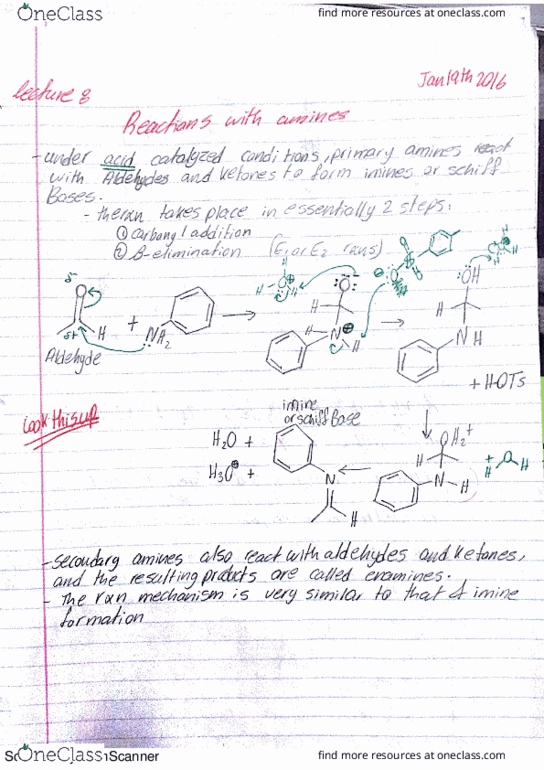 OneClass
find more resources at oneclass.com
lecture 8
Jan 19th 2016
Reactions with amines
- under acid catalyzed conditions, primary amines react
with Aldehydes and ketones to form imines or schiff
Bases.
- the rxn takes place in essentially 2 steps:
① Carbonyl addition
② β-elimination (E1 or E2 rxns)
δ-
O
δ+
H
+
NH2
Aldehyde
H
O
H
H
⊕
O
H
H
N
⊕
H
⊖
O
S
O
O
OH
H
NH
H
O
H
H
⊕
+ HOTs
Look this up
imine
or schiff Base
H2O +
H3O⊕ +
N
H
OH2+
H
N-H
+
H
O
H
- secondary amines also react with aldehydes and ketones,
and the resulting products are called enamines.
- The rxn mechanism is very similar to that of imine
formation
OneClass
Scanner
find more resources at oneclass.com